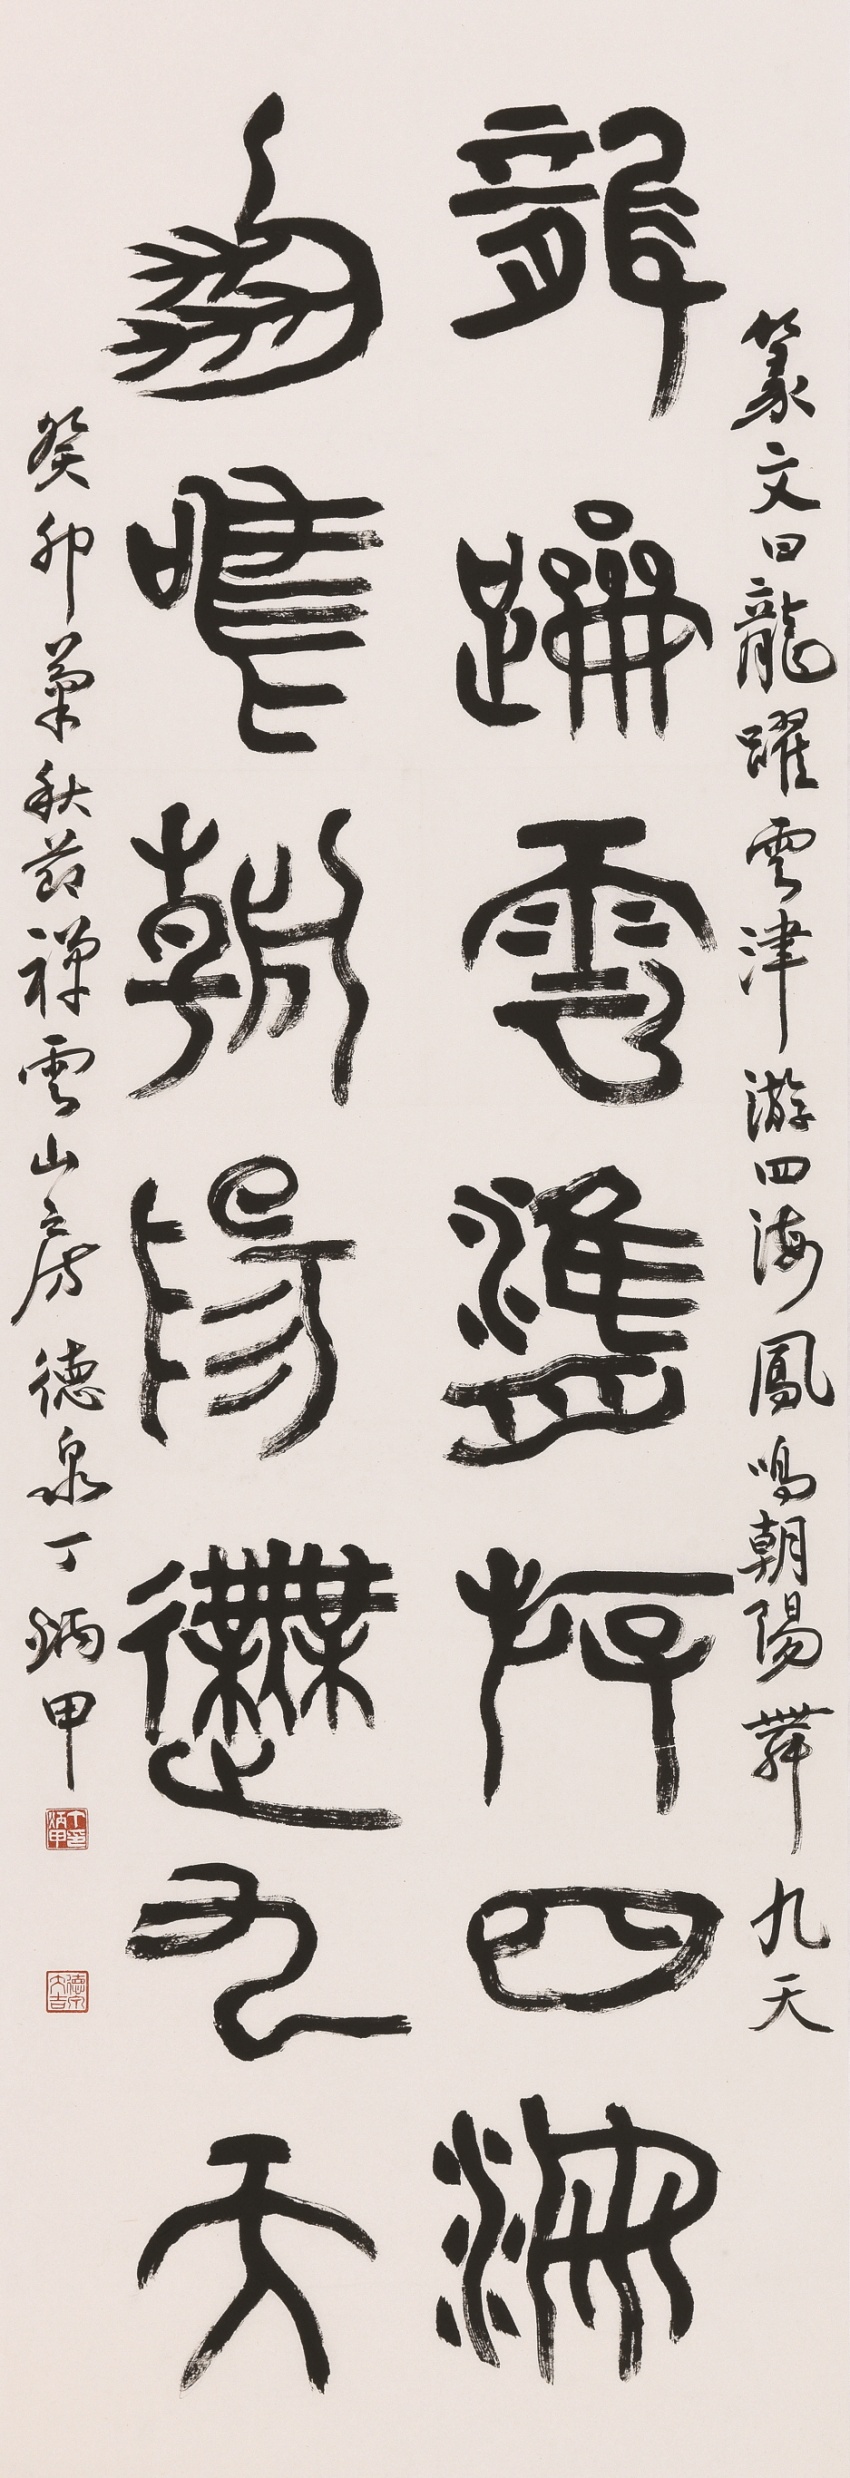 篆文曰龍躍雲津游四海鳳鳴朝陽舞九天
龍躍雲津游四海
鳳鳴朝陽舞九天
癸卯葉秋節禅雲山房德泉丁炳甲
丁炳甲印